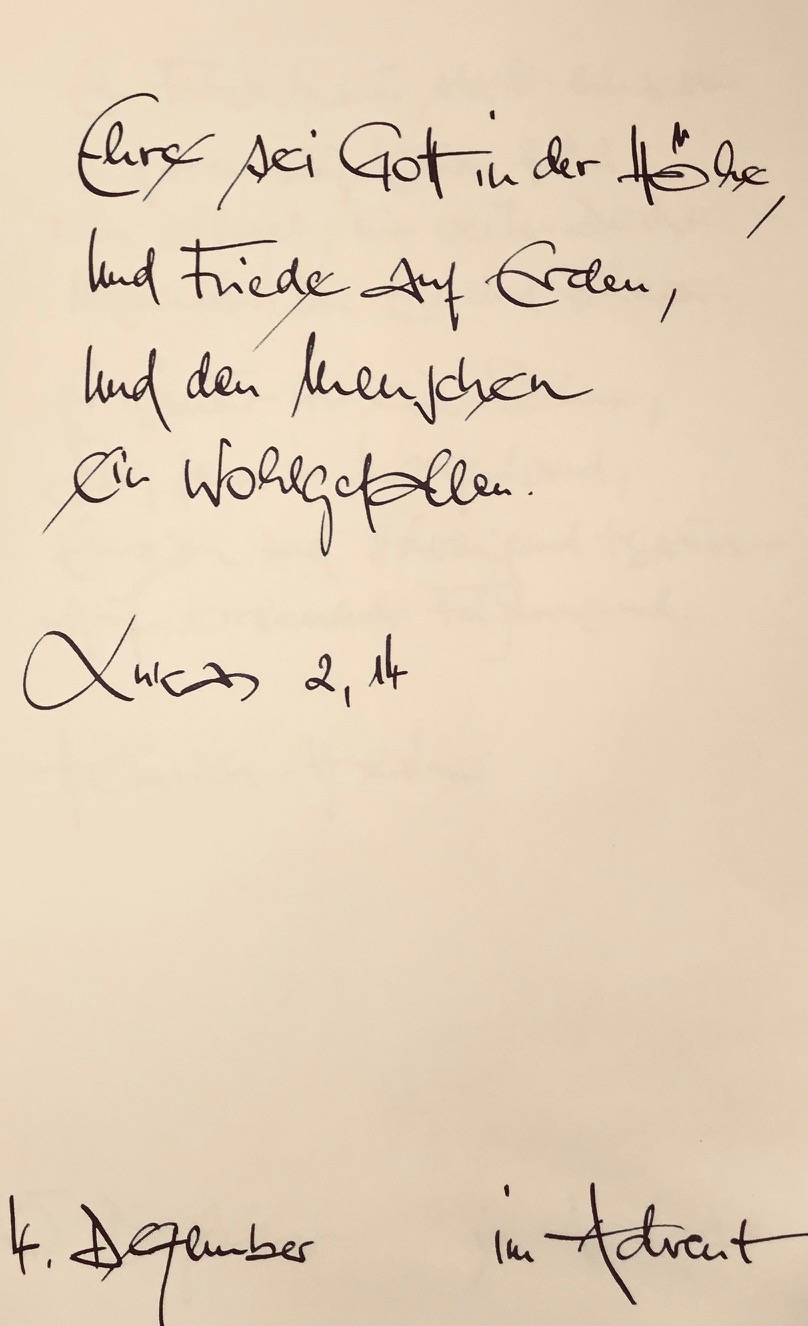 Ehre sei Gott in der Höhe,
und Friede auf Erden,
und den Menschen
ein Wohlgefallen.
Lukas 2, 14
4. Dezember im Advent